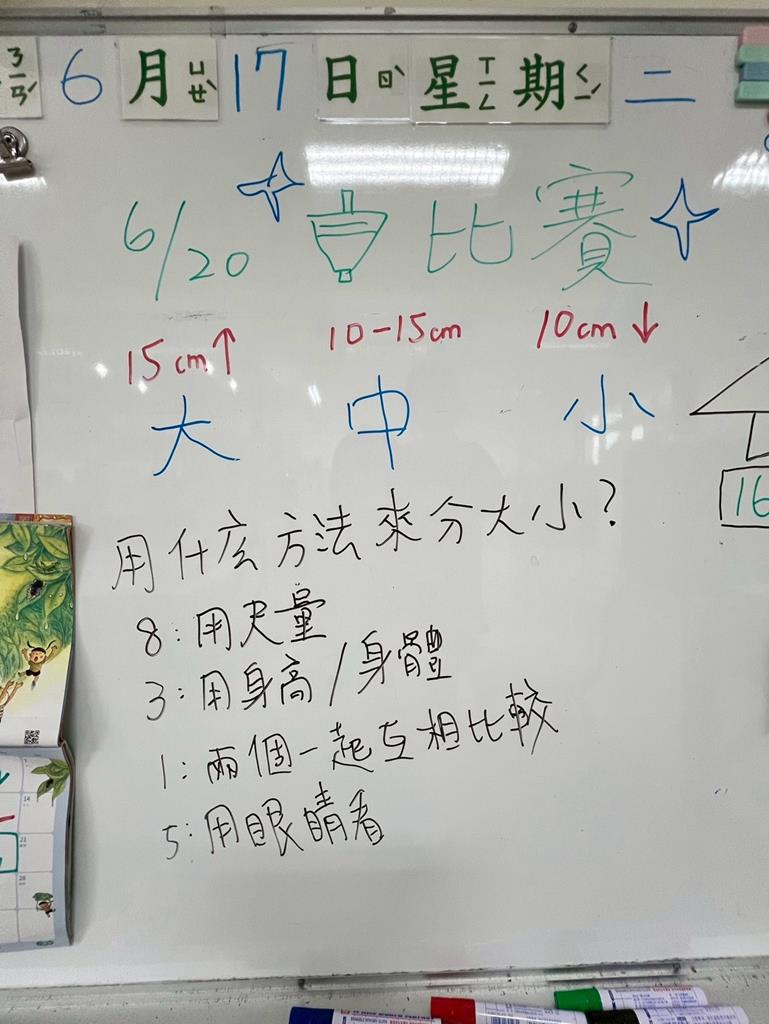 6月ㄩㄝˋ 17日ㄖˋ 星ㄒㄧㄥ期ㄑㄧˊ 二
6/20 比賽
15cm↑ 10-15cm 10cm↓
大 中 小
16
用什么方法來分大小?
8:用尺量
3:用身高/身體
1:兩個一起互相比較
5:用眼睛看
14
21
28